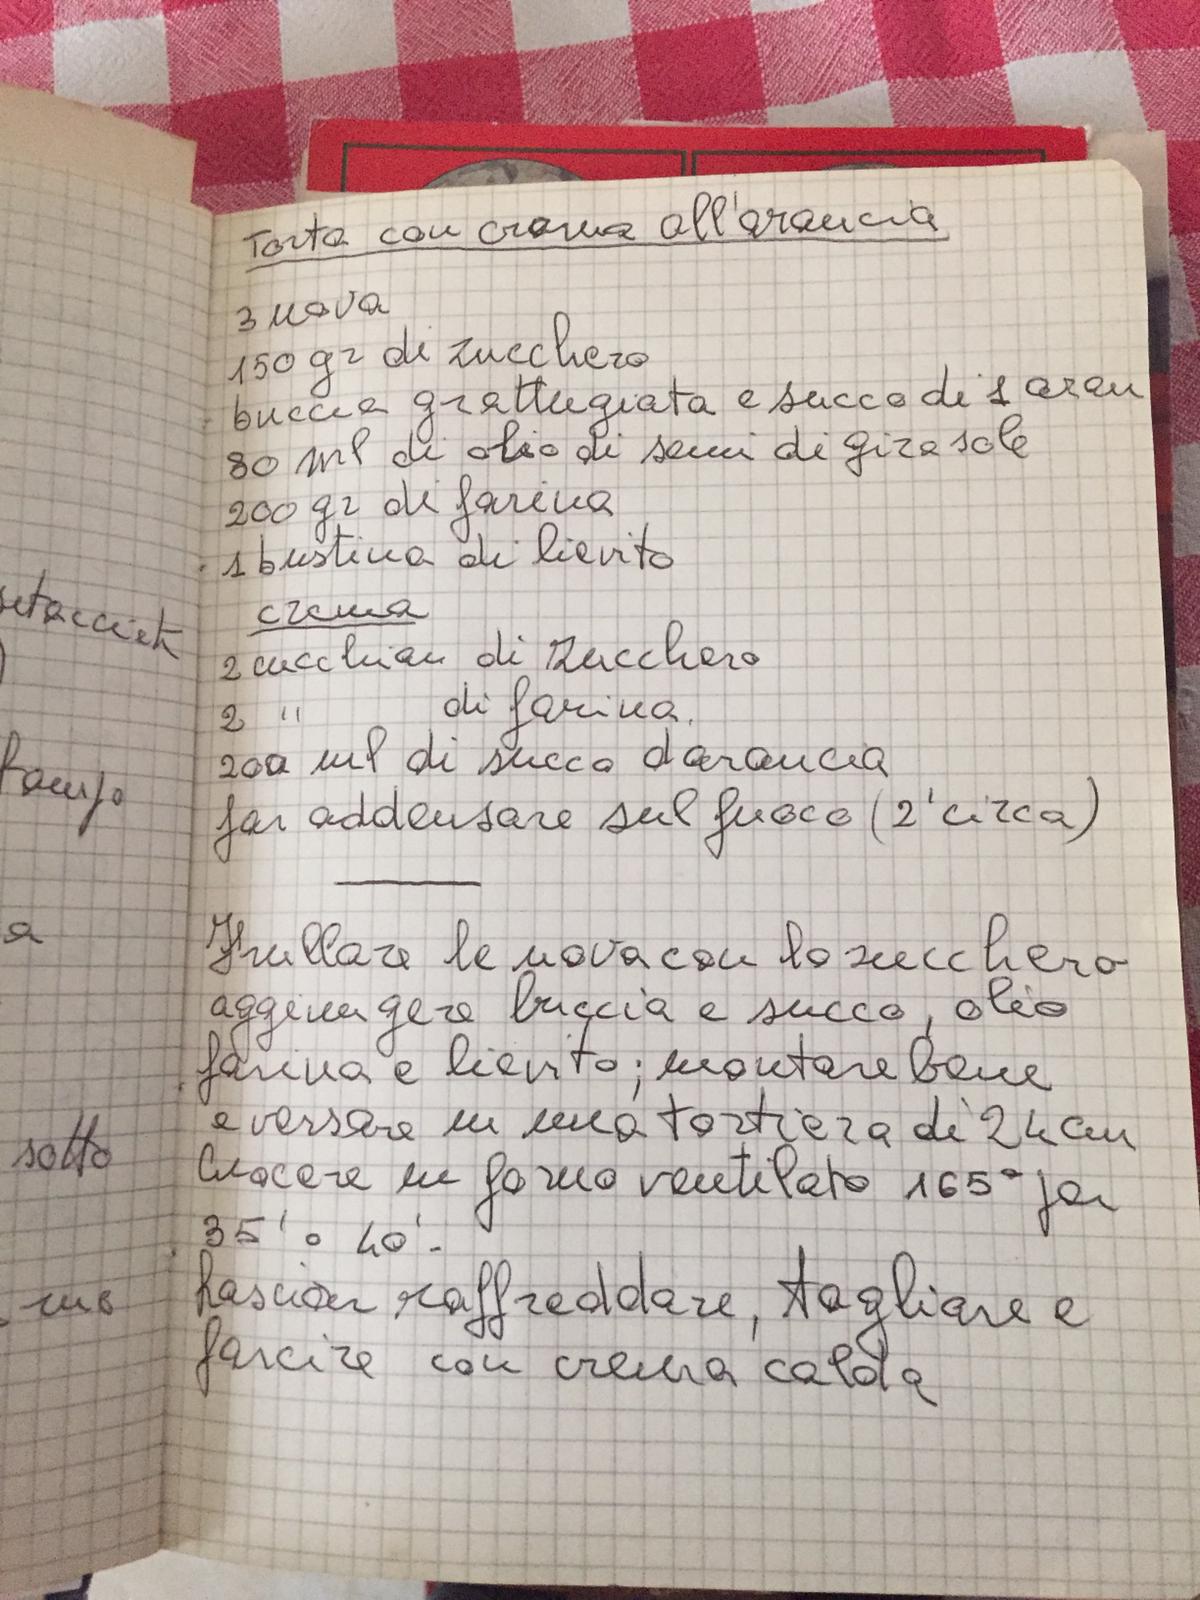 Torta con crema all'arancia
3 uova
150 gr di zucchero
buccia grattugiata e succo di 1 aran
80 ml di olio di semi di girasole
200 gr di farina
1 bustina di lievito
crema
2 cucchiai di zucchero
2 " di farina.
200 ml di succo d'arancia
far addensare sul fuoco (2' circa)
Frullare le uova con lo zucchero
aggiungere buccia e succo, olio
farina e lievito; montare bene
e versare in una tortiera di 24 cm
Cuocere in forno ventilato 165° per
35' o 40'-
Lasciar raffreddare, tagliare e
farcire con crema calda
sotto